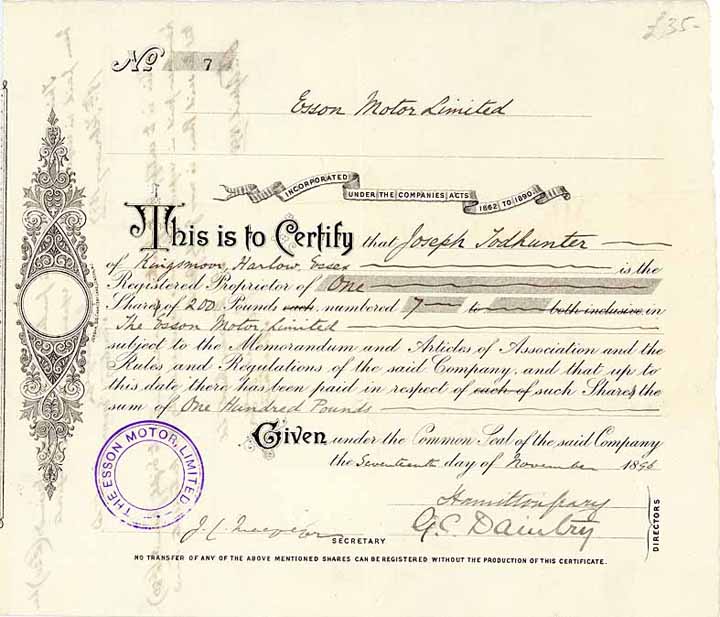 £35-
No 7
Esson Motor Limited
INCORPORATED UNDER THE COMPANIES ACTS 1862 TO 1890.
This is to Certify that Joseph Todhunter
of Kingsmoor, Harlow, Essex is the
Registered Proprietor of One
Share of 200 Pounds each, numbered 7 to both inclusive in
The Esson Motor, Limited
subject to the Memorandum and Articles of Association and the
Rules and Regulations of the said Company, and that up to
this date there has been paid in respect of each of such Shares the
sum of One Hundred Pounds
Given under the Common Seal of the said Company
the Seventeenth day of November 1896
THE ESSON MOTOR, LIMITED
G.C. Dauntry
DIRECTORS
SECRETARY
NO TRANSFER OF ANY OF THE ABOVE MENTIONED SHARES CAN BE REGISTERED WITHOUT THE PRODUCTION OF THIS CERTIFICATE.